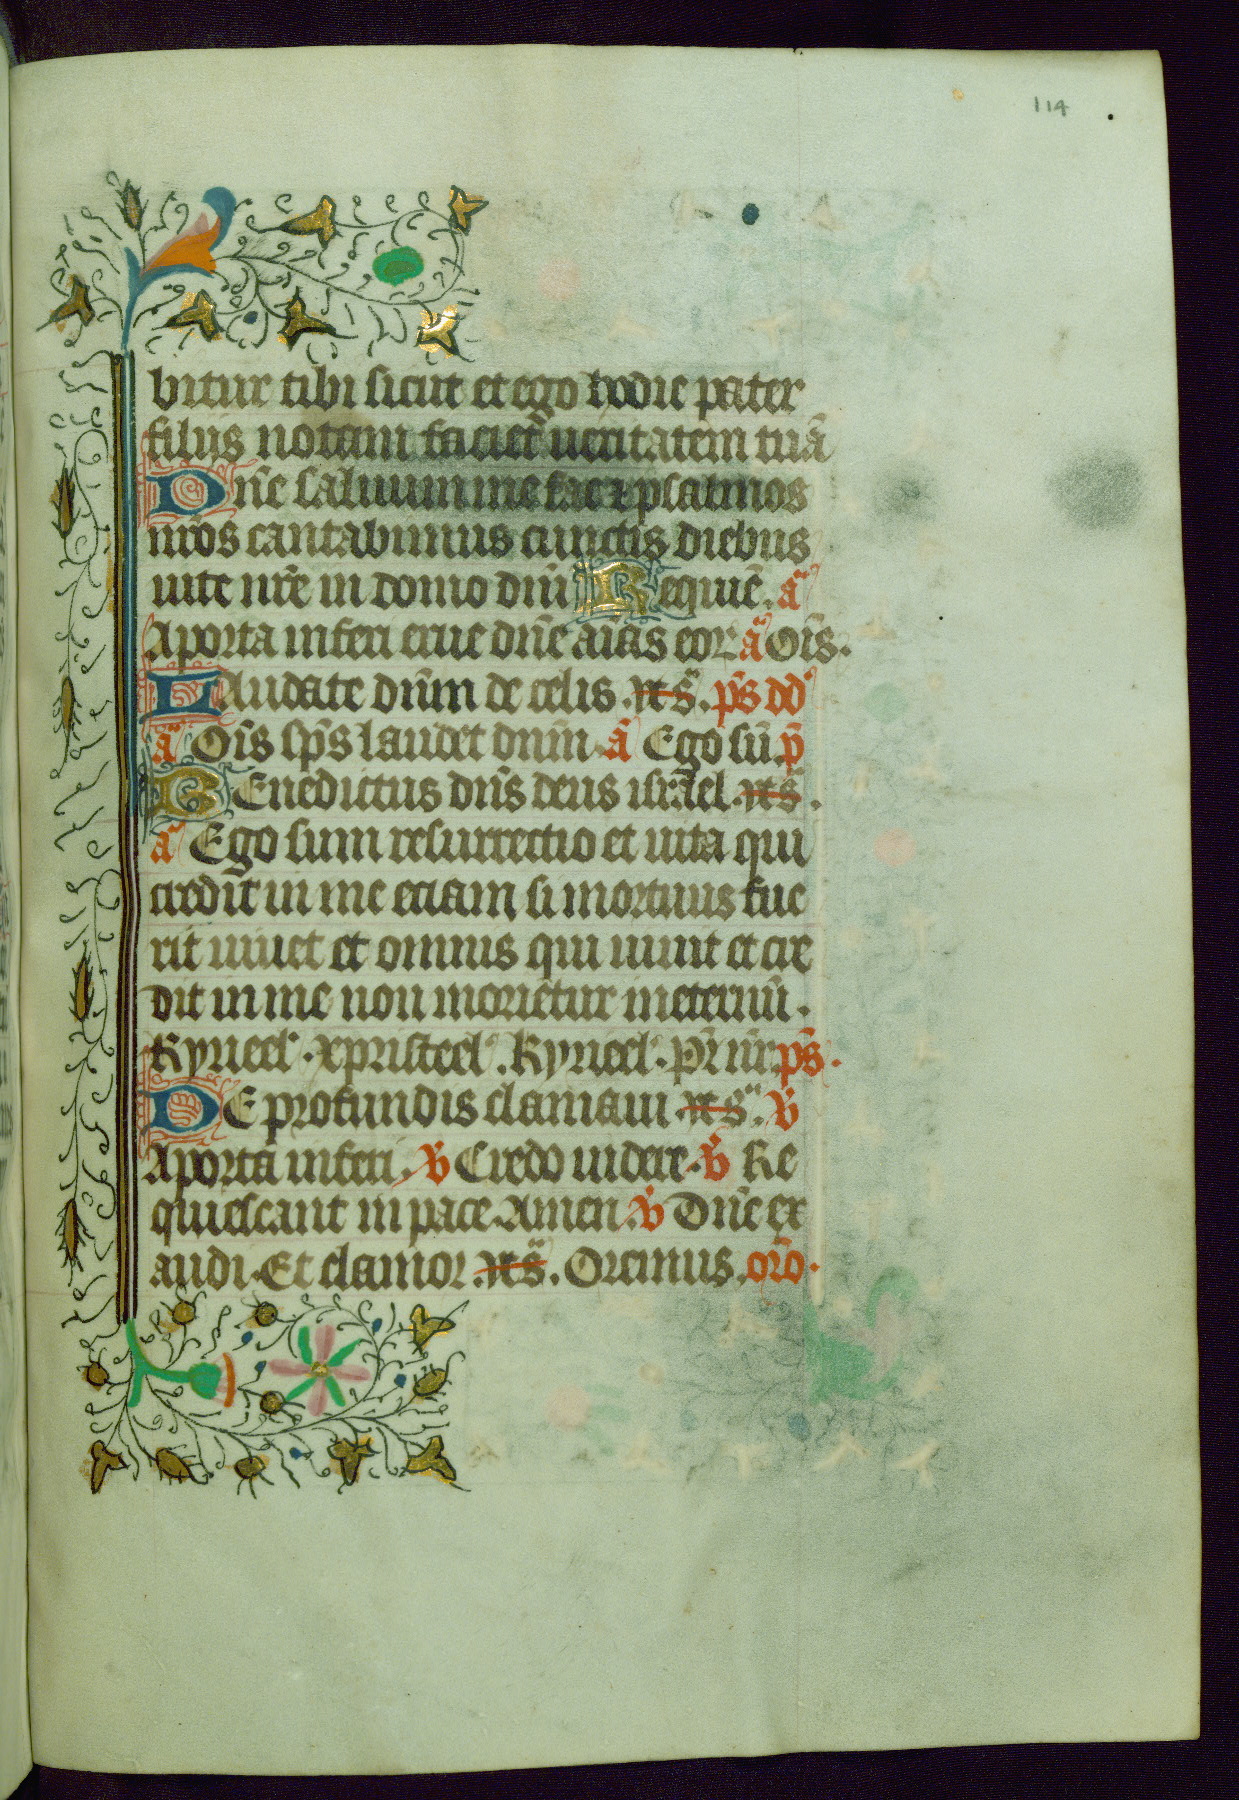 114
bitur tibi sicut et ego hodie pater
filijs notam faciet ueritatem tuā
Dn̄e saluum me fac ⁊ psalmos
nr̄os cantabimus cunctis diebus
uite nr̄e in domo dnī Requiē. an̄
Aporta inferi erue dn̄e aīas eor an̄ Oīs.
LAudate dn̄m de celis. xc̄s. ps̄ dd̄
an̄ Oīs sp̄s laudet dnm̄. an̄ Ego sū. p̄
BEnedictus dn̄s deus isrāel. xc̄s.
an̄ Ego sum resurrectio et uita qui
credit in me eciam si mortuus fue
rit uiuet et omnis qui uiuit et cre
dit in me non morietur ineternū.
Kyrieel. xpristeel. Kyrieel. Pr̄ nr̄. ps̄.
DE profundis clamaui. xc̄s. V̄
Aporta inferi. V̄ Credo uidere. V̄ Re
quiescant in pace. Amen. V̄ Dn̄e ex
audi. Et clamor. xc̄s. Oremus. or̄o.